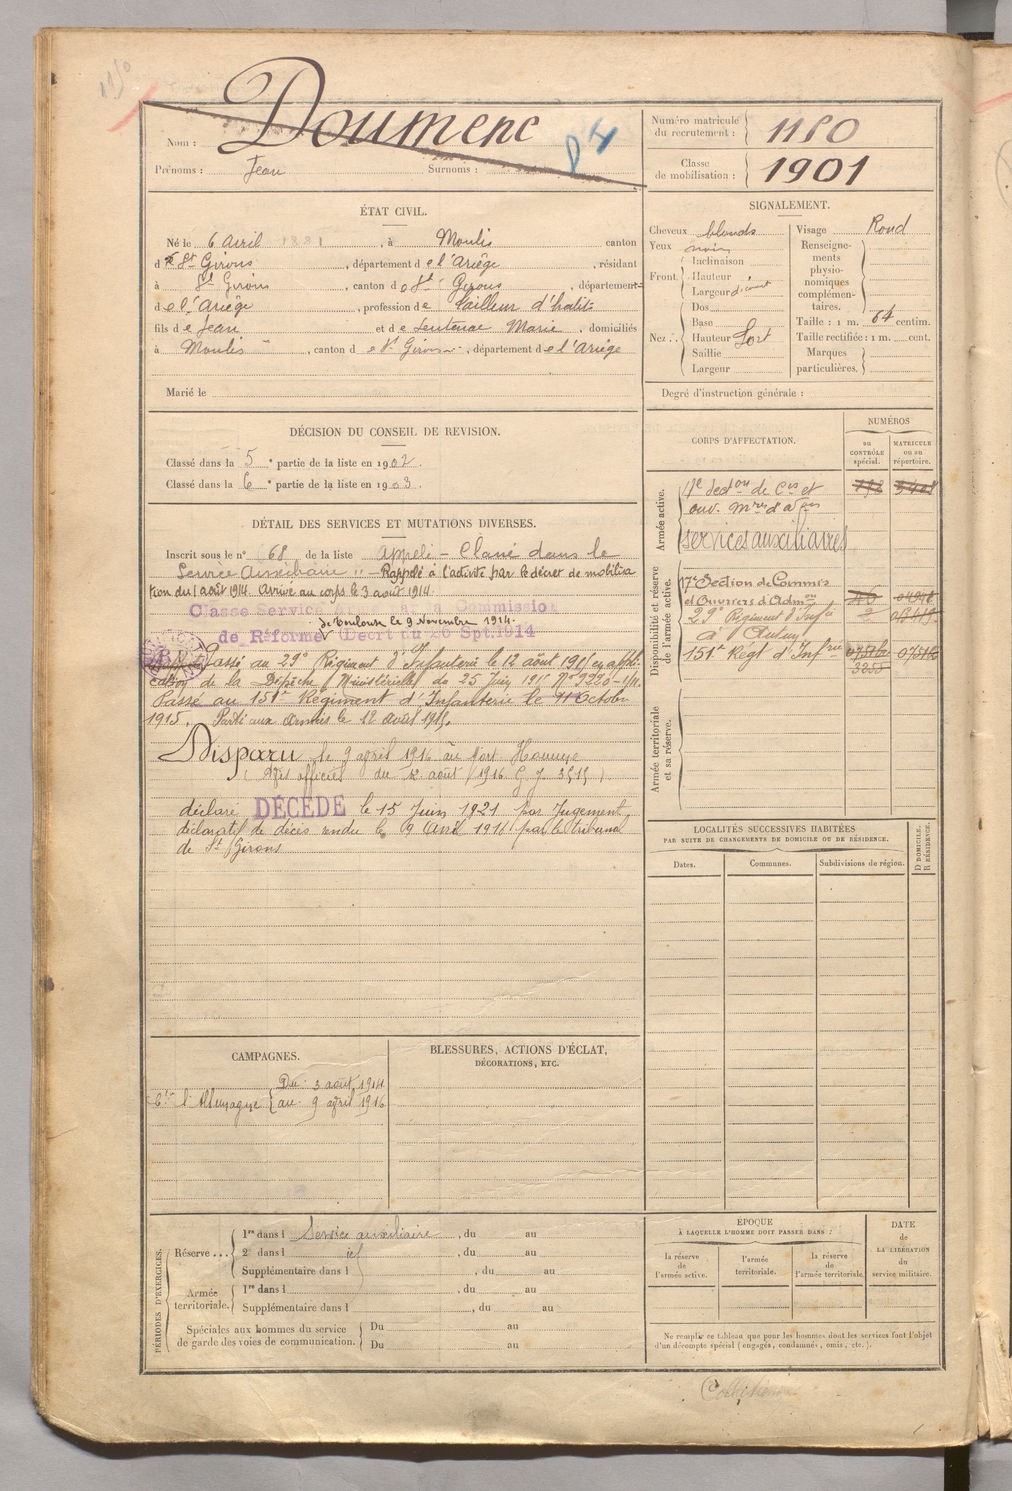 1150
Doumenc
84
Nom :
Prénoms : Jean Surnoms :
Numéro matricule du recrutement : 1150
Classe de mobilisation : 1901
ÉTAT CIVIL.
Né le 6 Avril 1881, à Moulis canton
de St Girons, département de l'Ariège, résidant
à St Girons, canton de St Girons, département
de l'Ariège, profession de tailleur d'habits
fils de Jean et de Sentenac Marie, domiciliés
à Moulis, canton de St Girons, département de l'Ariège
Marié le
SIGNALEMENT.
Cheveux blonds
Yeux noirs
Front Inclinaison
Hauteur
Largeur
Nez : Dos
Base
Hauteur fort
Saillie
Largeur
Visage Rond
Renseignements physionomiques complémentaires.
Taille : 1 m. 64 centim.
Taille rectifiée : 1 m. cent.
Marques particulières.
Degré d'instruction générale :
DÉCISION DU CONSEIL DE REVISION.
Classé dans la 5e partie de la liste en 1902.
Classé dans la 6e partie de la liste en 1903.
DÉTAIL DES SERVICES ET MUTATIONS DIVERSES.
Inscrit sous le n° 68 de la liste appelé - Classé dans le
Service Auxiliaire - Rappelé à l'activité par le décret de mobilisa
tion du 1 août 1914. Arrivé au corps le 3 août 1914.
Classé Service Armé par la Commission
de Toulouse le 9 Novembre 1914.
de Réforme (Décret du 26 Spt. 1914
Passé au 29e Régiment d'Infanterie le 12 août 1915 en appli
cation de la Dépêche Ministérielle du 25 Juin 1915 N° 9220-1/11.
Passé au 151e Régiment d'Infanterie le 11 Octobre
1915. Parti aux armées le 12 août 1915.
Disparu le 9 avril 1916 au Mort Homme
(Avis officiel du 12 août 1916 G. J. 3515)
déclaré DÉCÉDÉ le 15 Juin 1921 par Jugement
déclaratif de décès rendu le 9 Avril 1916 par le tribunal
de St Girons
CORPS D'AFFECTATION.
NUMÉROS
AU CONTRÔLE spécial.
MATRICULE ou au répertoire.
Armée active.
17e Section de Cis et
ouv. mres d'aon
services auxiliaires
Disponibilité et réserve de l'armée active.
17e Section de Commis
et Ouvriers d'Admon
29e Régiment d'Infie
à Autun
151e Régt d'Infrie
3255
Armée territoriale et sa réserve.
LOCALITÉS SUCCESSIVES HABITÉES
PAR SUITE DE CHANGEMENTS DE DOMICILE OU DE RÉSIDENCE.
Dates.
Communes.
Subdivisions de région.
D DOMICILE.
R RÉSIDENCE.
CAMPAGNES.
Cte l'Allemagne Du 3 août 1914
au 9 avril 1916
BLESSURES, ACTIONS D'ÉCLAT,
DÉCORATIONS, ETC.
PÉRIODES D'EXERCICES.
Réserve ... 1re dans l Service auxiliaire, du au
2e dans l id, du au
Supplémentaire dans l, du au
Armée territoriale. 1re dans l, du au
Supplémentaire dans l, du au
Spéciales aux hommes du service de garde des voies de communication. Du au
Du au
ÉPOQUE
À LAQUELLE L'HOMME DOIT PASSER DANS :
la réserve de l'armée active.
l'armée territoriale.
la réserve de l'armée territoriale.
DATE
de
LA LIBÉRATION
du
service militaire.
Ne remplir ce tableau que pour les hommes dont les services font l'objet
d'un décompte spécial (engagés, condamnés, omis, etc.).